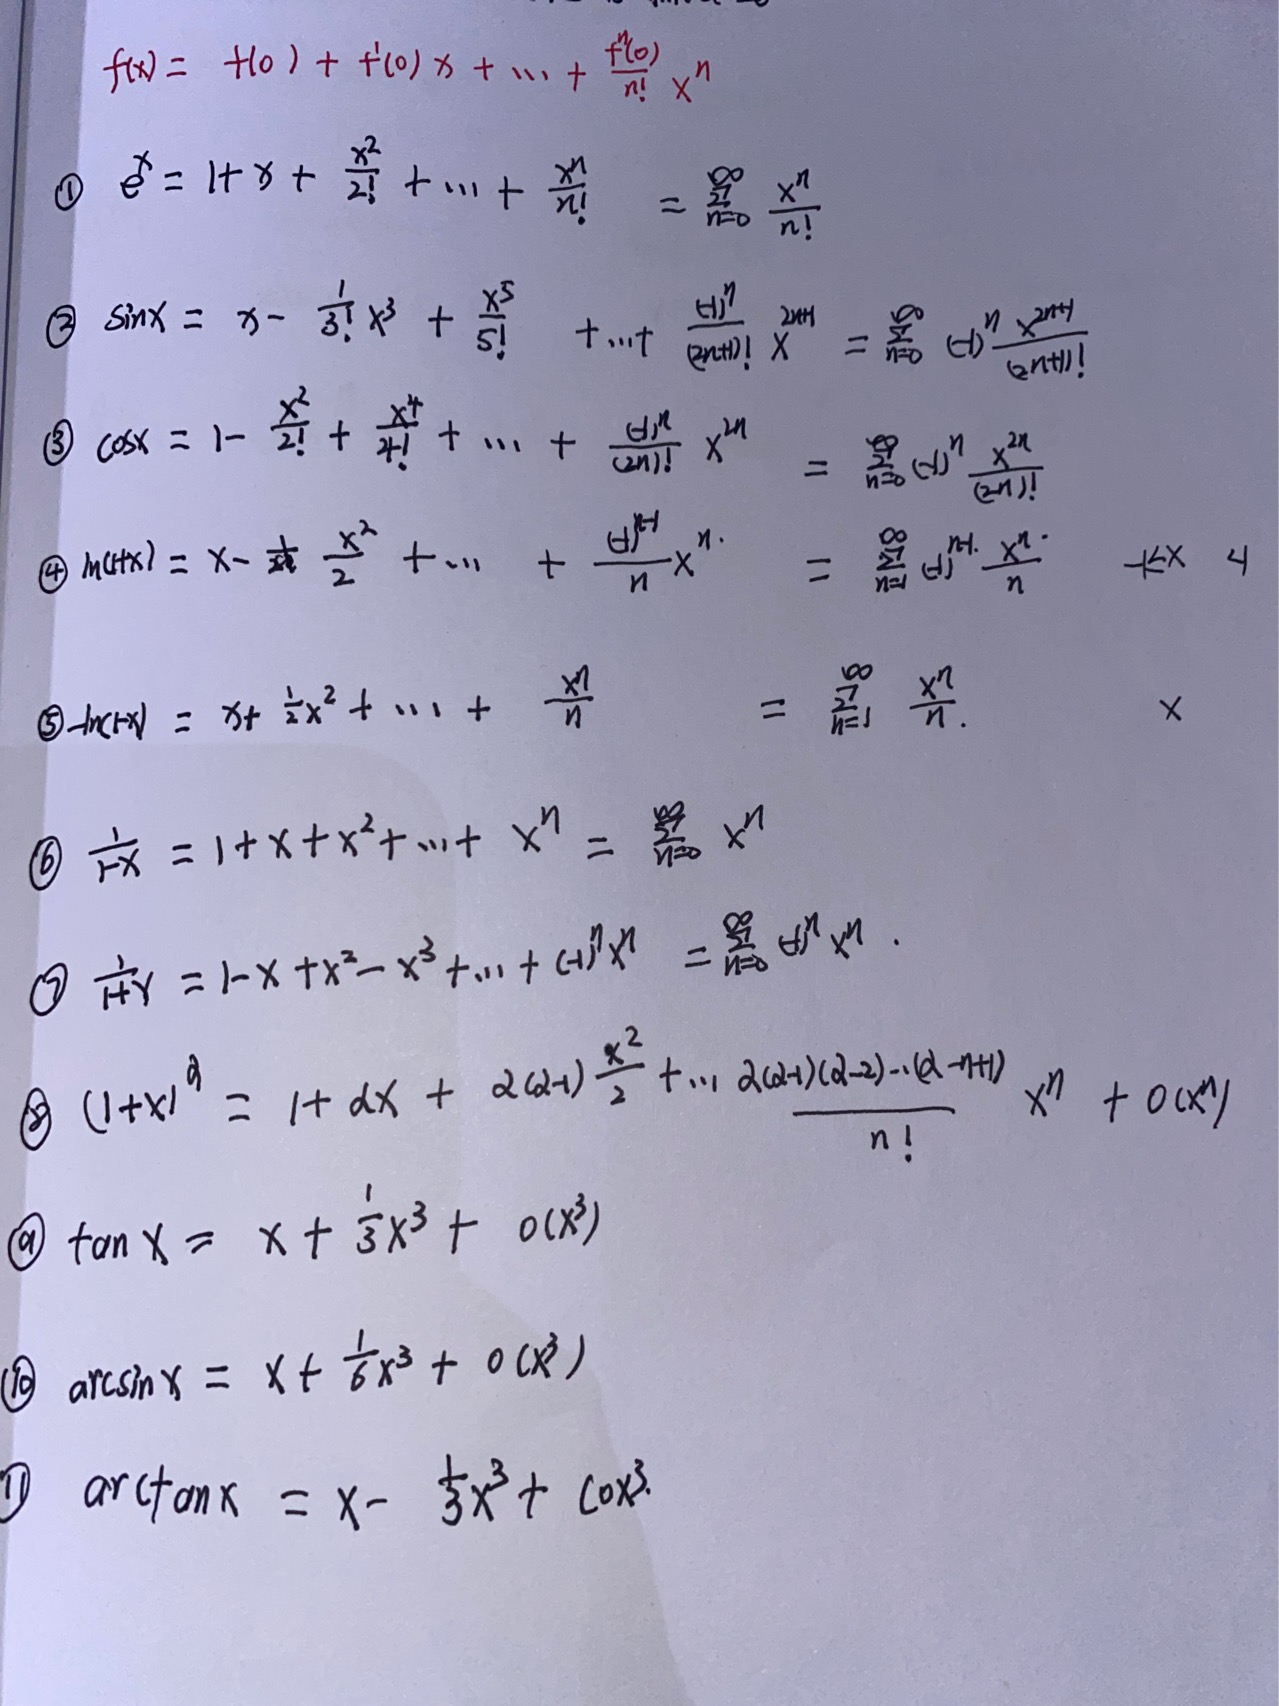 f(x) = f(0) + f'(0) x + ... + fⁿ(0)/n! xⁿ
① eˣ = 1 + x + x²/2! + ... + xⁿ/n! = ∑_{n=0}^{∞} xⁿ/n!
② sinx = x - 1/3! x³ + x⁵/5! + ... + (-1)ⁿ/(2n+1)! x²ⁿ⁺¹ = ∑_{n=0}^{∞} (-1)ⁿ x²ⁿ⁺¹/(2n+1)!
③ cosx = 1 - x²/2! + x⁴/4! + ... + (-1)ⁿ/(2n)! x²ⁿ = ∑_{n=0}^{∞} (-1)ⁿ x²ⁿ/(2n)!
④ ln(1+x) = x - x²/2 + ... + (-1)ⁿ⁻¹/n xⁿ = ∑_{n=1}^{∞} (-1)ⁿ⁻¹ xⁿ/n -1<x
⑤ -ln(1-x) = x + 1/2 x² + ... + xⁿ/n = ∑_{n=1}^{∞} xⁿ/n. x
⑥ 1/(1-x) = 1 + x + x² + ... + xⁿ = ∑_{n=0}^{∞} xⁿ
⑦ 1/(1+x) = 1 - x + x² - x³ + ... + (-1)ⁿxⁿ = ∑_{n=0}^{∞} (-1)ⁿ xⁿ.
⑧ (1+x)^α = 1 + αx + α(α-1) x²/2 + ... α(α-1)(α-2)...(α-n+1)/n! xⁿ + o(xⁿ)
⑨ tan x = x + 1/3 x³ + o(x³)
⑩ arcsin x = x + 1/6 x³ + o(x³)
⑪ arctanx = x - 1/3 x³ + (ox³.